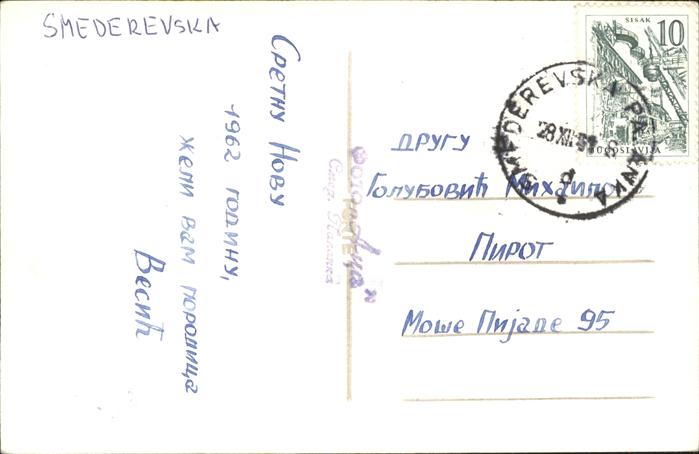 SMEDEREVSKA
Сретну Нову
1962 годину,
жели вам породица
Весић
SISAK
10
JUGOSLAVIJA
SMEDEREVSKA PALANKA
28 XII
ДРУГУ
Голубовић Михаило
Пирот
Моше Пијаде 95
Фото
Смед. Паланка